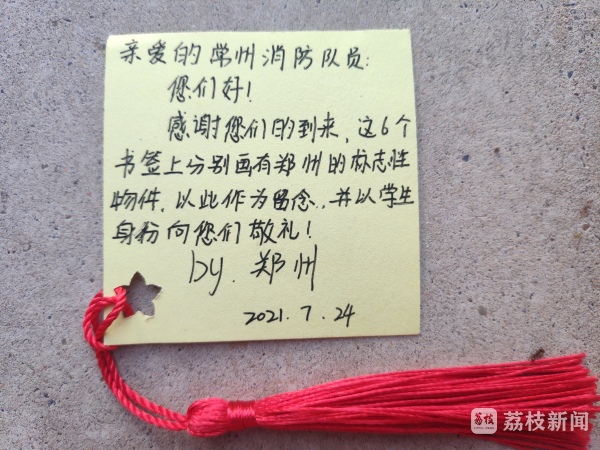 亲爱的常州消防队员:
您们好!
感谢您们的到来,这6个
书签上分别画有郑州的标志性
物件,以此作为留念,并以学生
身份向您们敬礼!
by.郑州
2021.7.24
荔枝
荔枝新闻